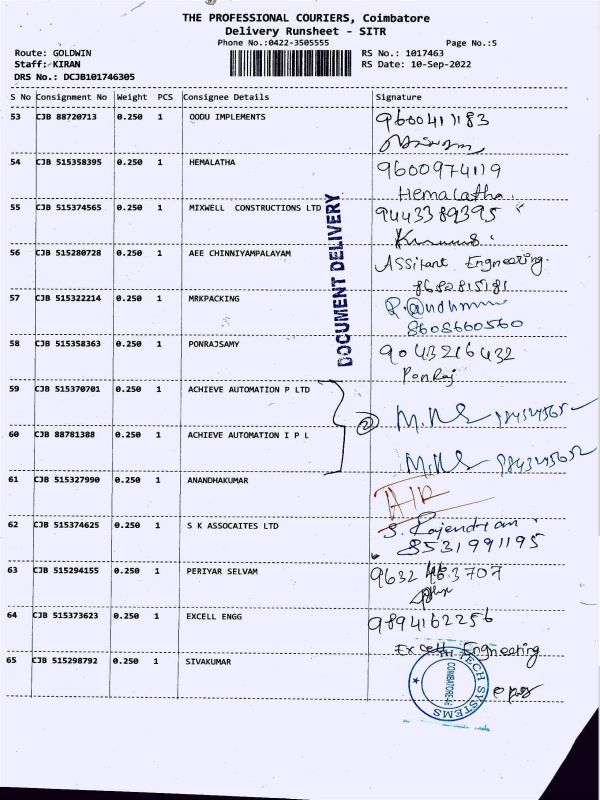 THE PROFESSIONAL COURIERS, Coimbatore
Delivery Runsheet - SITR
Phone No.:0422-3505555 Page No.:5
Route: GOLDWIN RS No.: 1017463
Staff: KIRAN RS Date: 10-Sep-2022
DRS No.: DCJB101746305
S No Consignment No Weight PCS Consignee Details Signature
53 CJB 88720713 0.250 1 OODU IMPLEMENTS 9600411183
54 CJB 515358395 0.250 1 HEMALATHA 9600974119
Hemalatha.
55 CJB 515374565 0.250 1 MIXWELL CONSTRUCTIONS LTD 9443389395
DOCUMENT DELIVERY
56 CJB 515280728 0.250 1 AEE CHINNIYAMPALAYAM Assitant Engneering.
8682815181
57 CJB 515322214 0.250 1 MRKPACKING
8608660560
58 CJB 515358363 0.250 1 PONRAJSAMY 9043216432
PonRaj
59 CJB 515370701 0.250 1 ACHIEVE AUTOMATION P LTD
2
60 CJB 88781388 0.250 1 ACHIEVE AUTOMATION I P L
61 CJB 515327990 0.250 1 ANANDHAKUMAR
62 CJB 515374625 0.250 1 S K ASSOCAITES LTD S. Rajendran.
8531991195
63 CJB 515294155 0.250 1 PERIYAR SELVAM 9632 463707
64 CJB 515373623 0.250 1 EXCELL ENGG 9894162256
Excell Engneering
65 CJB 515298792 0.250 1 SIVAKUMAR
TECH SYSTEMS
COIMBATORE